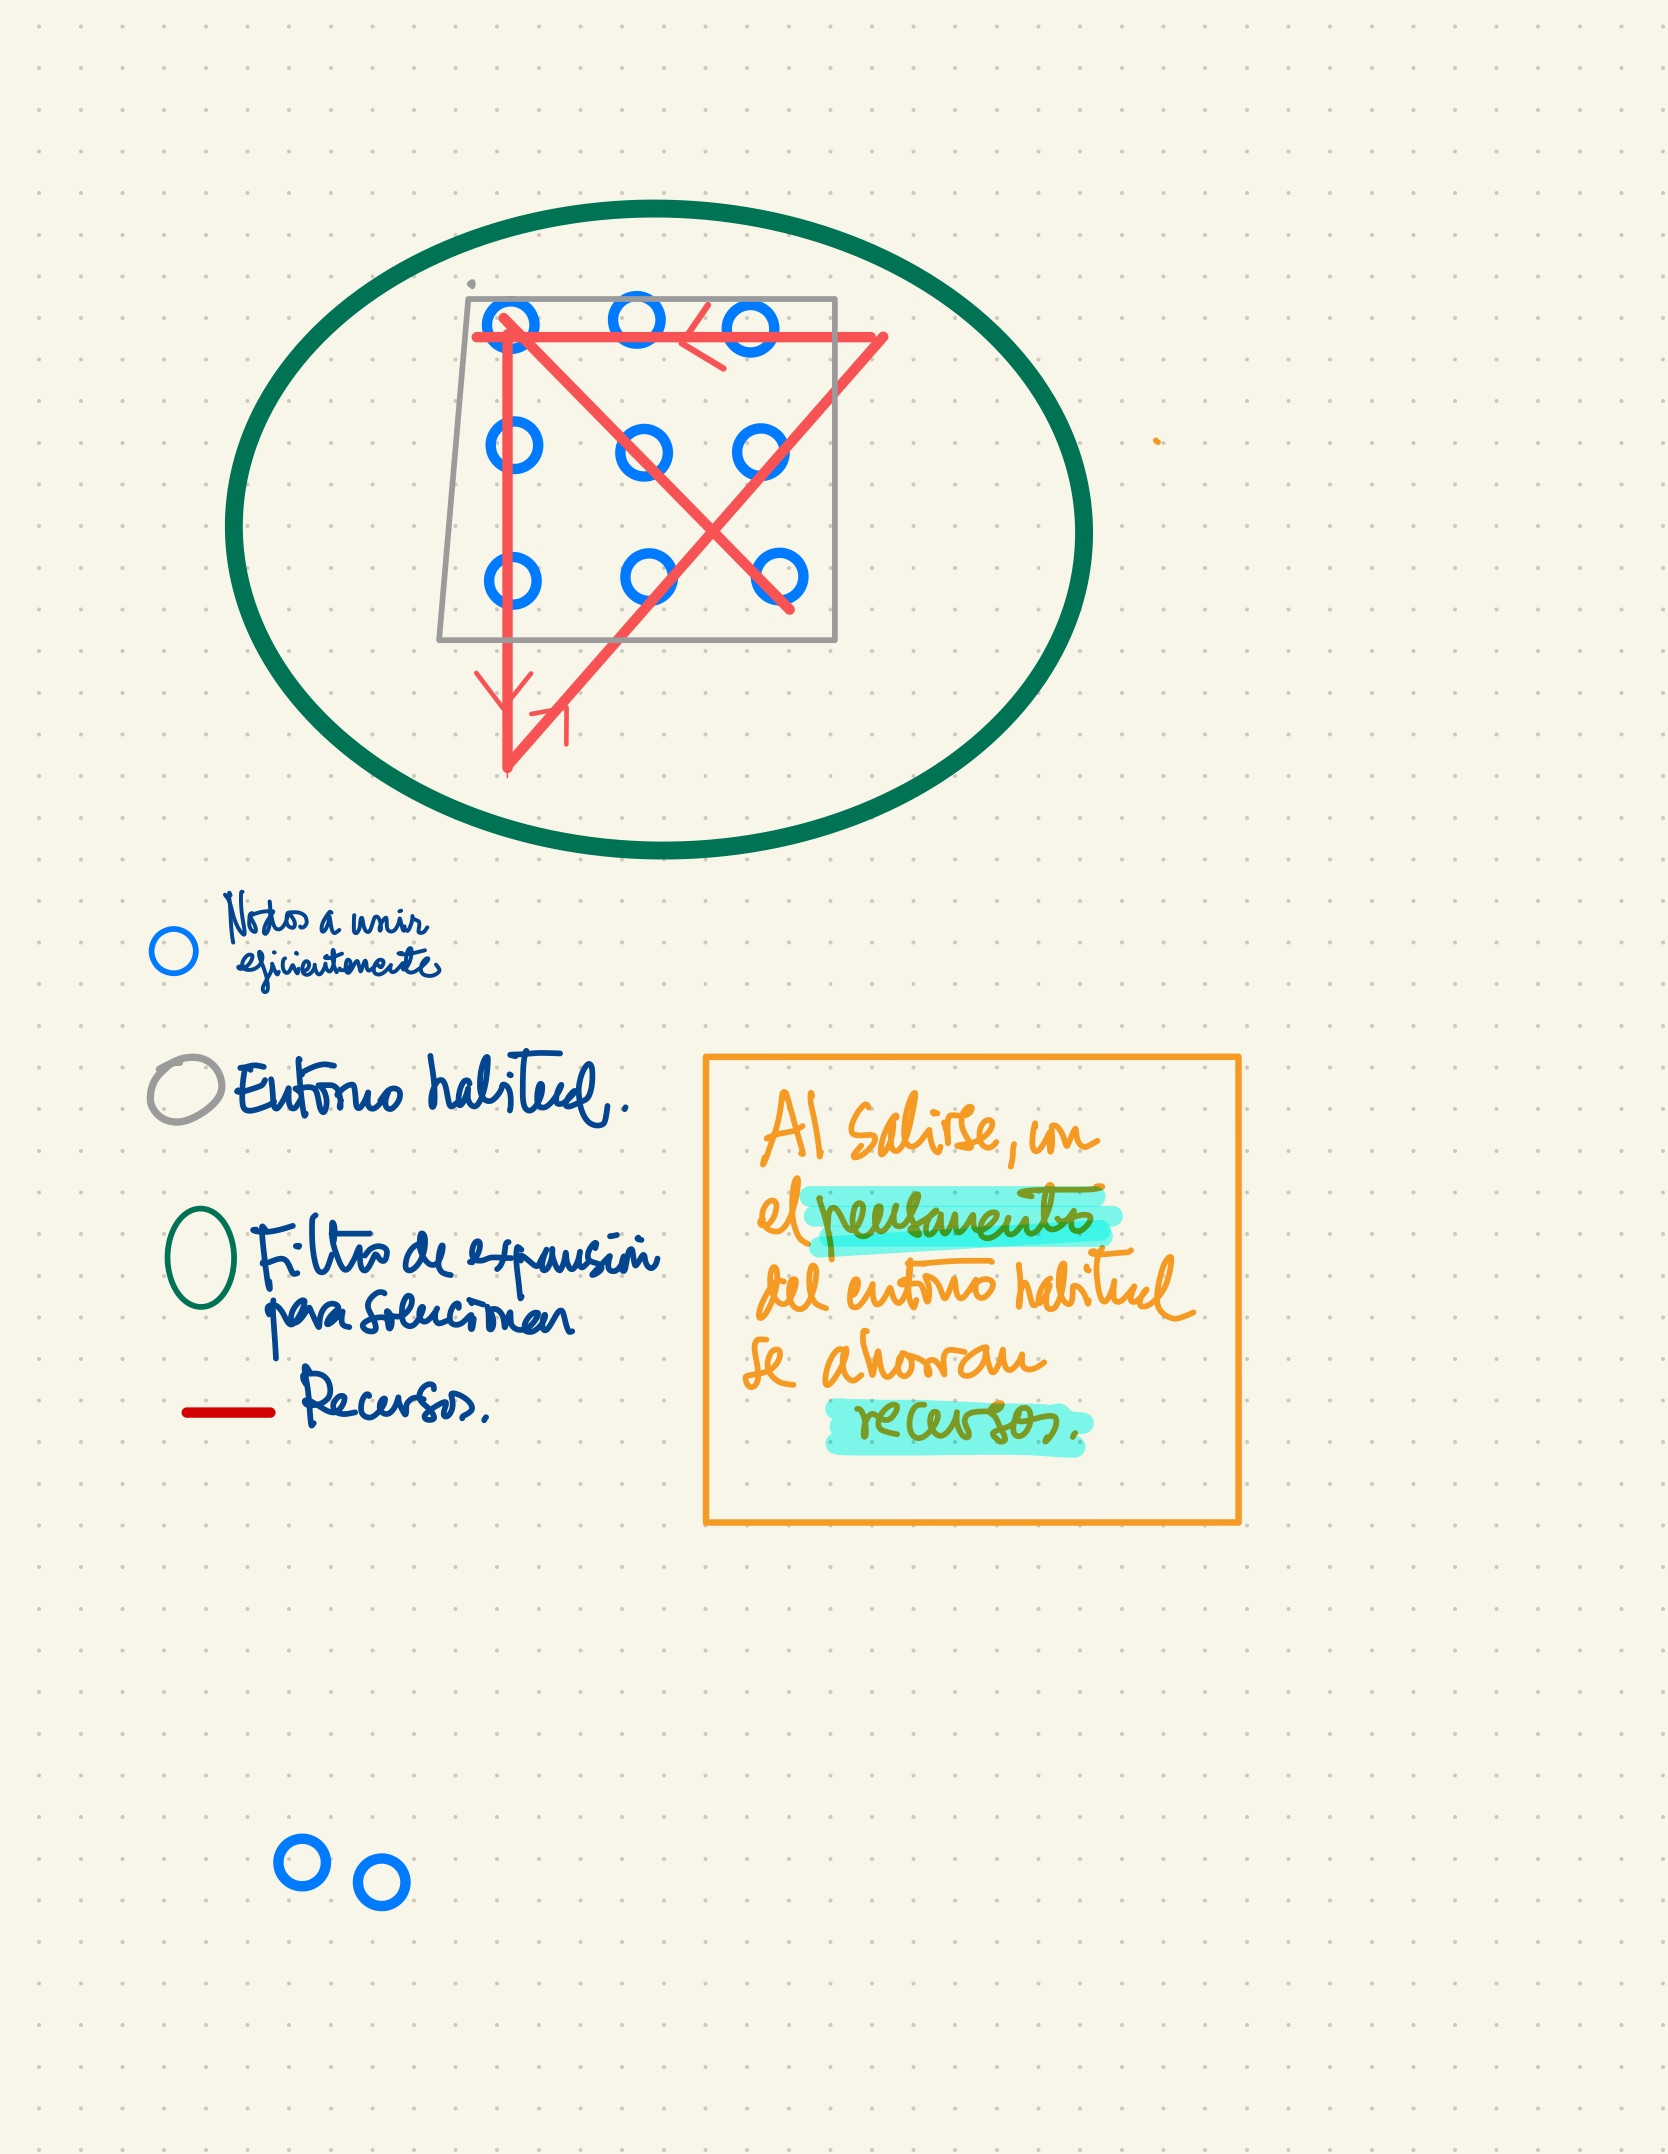 Nodos a unir
eficientemente
Entorno habitual.
Filtro de expansión
para solucionar
Recursos.
Al salirse, con
el pensamento
del entorno habitual
se ahorran
recursos.